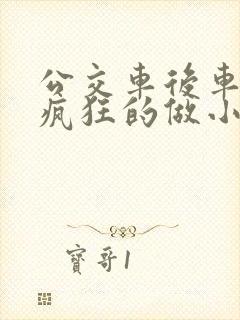 公交車後車
瘋狂的做小
寶哥1